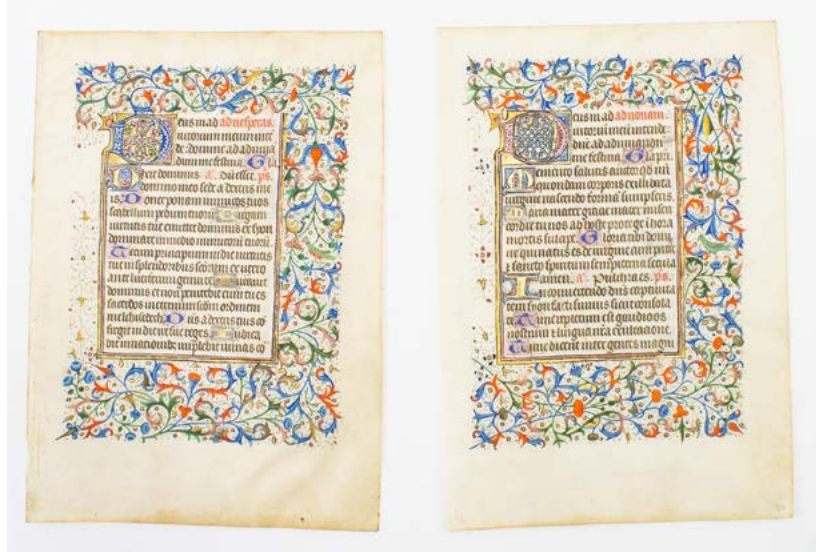 Deus in ad ad vesperas.
iutorium meum inten
de: domine ad adiuua
dum me festina. Gla
Dixit dominus a. Dū esset. ps.
domino meo sede a dextris me
is. Donec ponam inimicos tuos
scabellum pedum tuorū. Virgam
virtutis tue emittet dominus ex syon
dominare in medio inimicorū tuorū.
Tecum principium in die virtutis
tue in splendoribus scōrum ex utero
ante luciferum genui te. Iurauit
dominus et non penitebit eum tu es
sacerdos in eternum scdm ordinem
melchisedech. Dñs a dextris tuis cō
fregit in die ire sue reges. Iudica
bit in nacionibus implebit ruinas cō
Deus in ad ad nonam.
iutoriū meū intende
dñe ad adiuuandū
me festina. Gla pri.
Memento salutis auctor qd nrī
quondam corporis ex illibata
virgine nascendo formā sumpseris.
Maria mater gracie mater miseri
cordie tu nos ab hoste protege i hora
mortis suscipe. Gloria tibi domi
ne qui natus es de virgine cum patre
z sancto spiritu in sempiterna secula
amen. a. Pulchra es. ps.
In conuertendo dñs captiuita
tem syon facti sumus sicut consola
ti. Tunc repletum est gaudio os
nostrum z lingua nrā exultacione.
Tunc dicent inter gentes magni